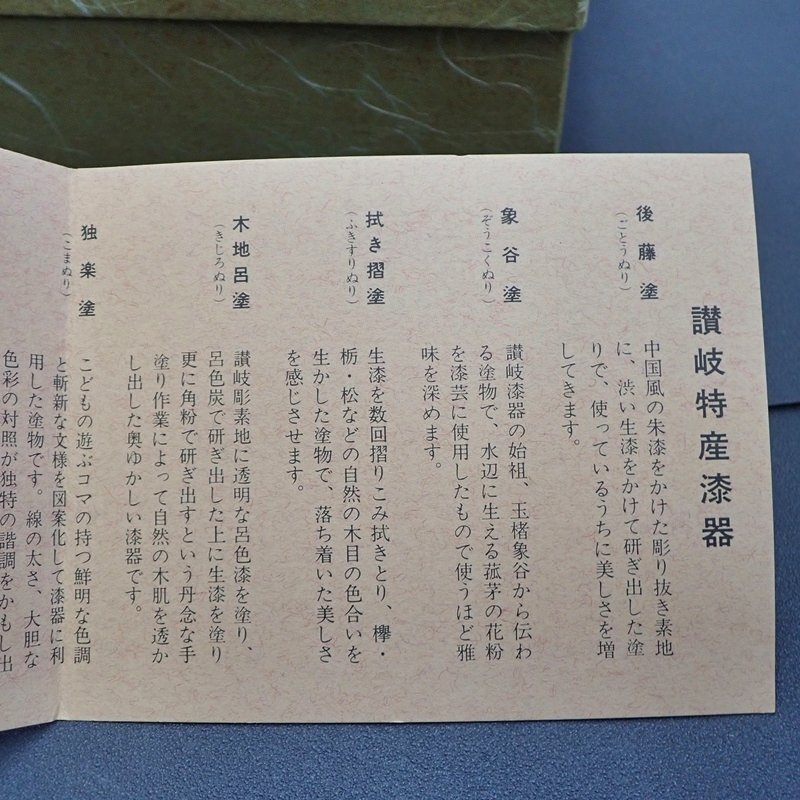 讃岐特産漆器
後藤塗
(ごとうぬり)
中国風の朱漆をかけた彫り抜き素地
に、渋い生漆をかけて研ぎ出した塗
りで、使っているうちに美しさを増
してきます。
象谷塗
(ぞうこくぬり)
讃岐漆器の始祖、玉楮象谷から伝わ
る塗物で、水辺に生える菰茅の花粉
を漆芸に使用したもので使うほど雅
味を深めます。
拭き摺塗
(ふきすりぬり)
生漆を数回摺りこみ拭きとり、欅・
栃・松などの自然の木目の色合いを
生かした塗物で、落ち着いた美しさ
を感じさせます。
木地呂塗
(きじろぬり)
讃岐彫素地に透明な呂色漆を塗り、
呂色炭で研ぎ出した上に生漆を塗り
更に角粉で研ぎ出すという丹念な手
塗り作業によって自然の木肌を透か
し出した奥ゆかしい漆器です。
独楽塗
(こまぬり)
こどもの遊ぶコマの持つ鮮明な色調
と斬新な文様を図案化して漆器に利
用した塗物です。線の太さ、大胆な
色彩の対照が独特の諧調をかもし出